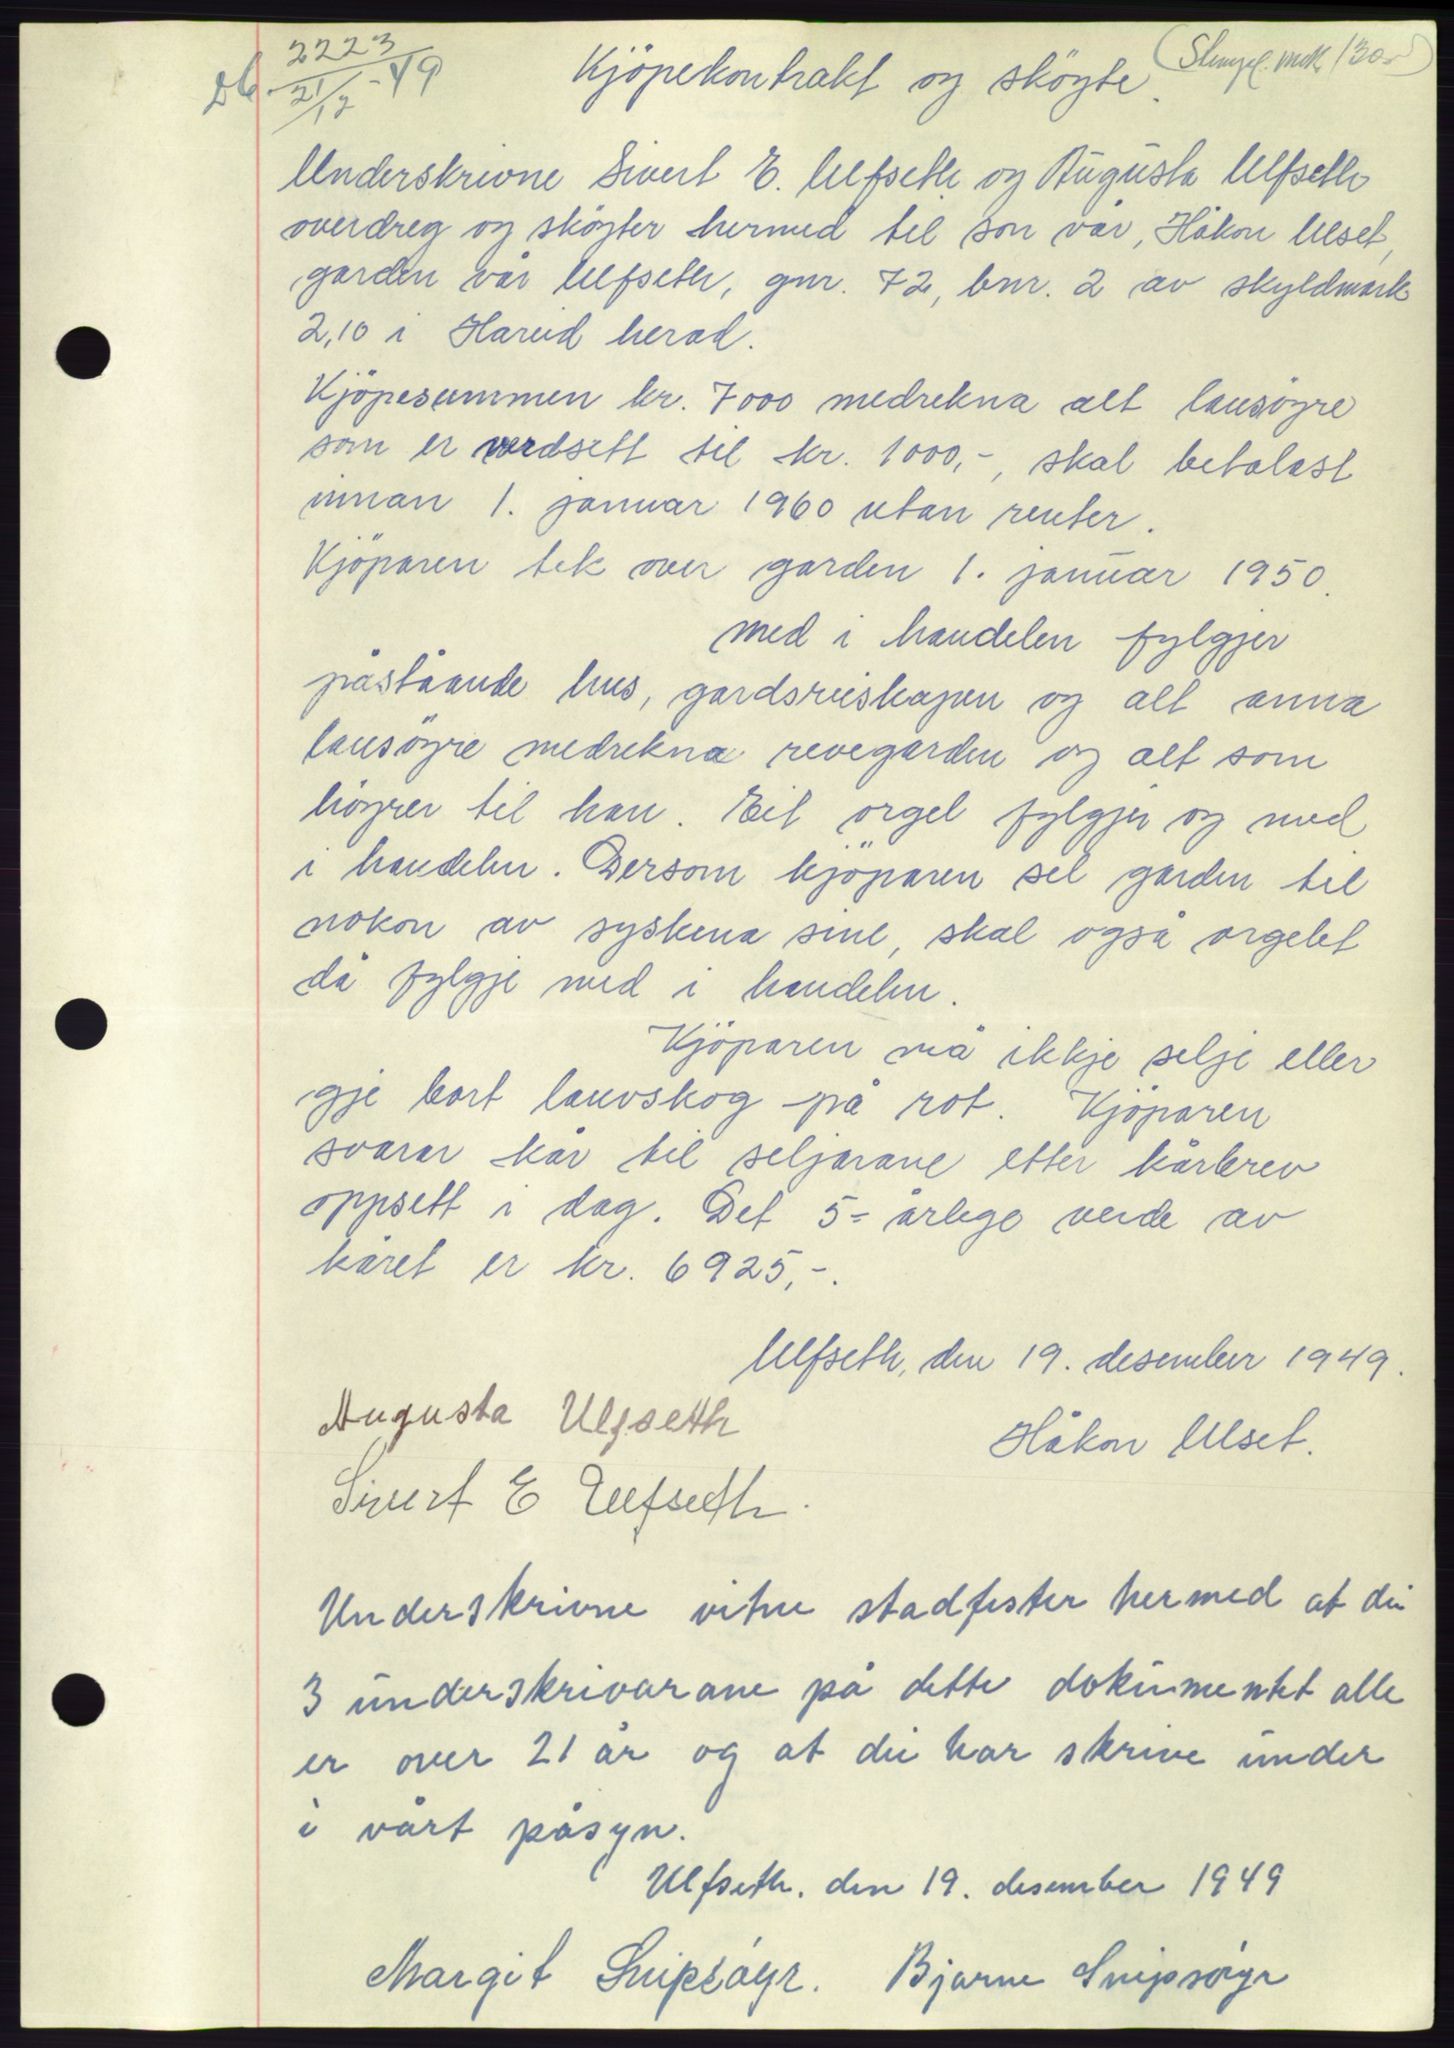 Db. 2223
21/12 - 49
(Stempl. mrk 130,-)
Kjöpekontrakt og sköyte.
Underskrivne Sivert E. Ulfseth og Augusta Ulfseth
overdreg og sköyter hermed til son vår, Håkon Ulset,
garden vår Ulfseth, gnr. 72, bnr. 2 av skyldmark
2,10 i Hareid herad.
Kjöpesummen kr. 7000 medrekna alt lausöyre
som er verdsett til kr. 1000,-, skal betalast
innan 1. januar 1960 utan renter.
Kjöparen tek over garden 1. januar 1950.
Med i handelen fylgjer
påståande hus, gardsreiskapen og alt anna
lausöyre medrekna revegarden og alt som
höyrer til han. Eit orgel fylgjer og med
i handelen. Dersom kjöparen sel garden til
nokon av syskena sine, skal også orgelet
då fylgje med i handelen.
Kjöparen må ikkje selje eller
gje bort lauvskog på rot. Kjöparen
svarar kår til seljarane etter kårbrev
oppsett i dag. Det 5-årlege verde av
kåret er kr. 6925,-.
Ulfseth, den 19. desember 1949.
Augusta Ulfseth
Håkon Ulset.
Sivert E Ulfseth.
Underskrivne vitne stadfester hermed at dei
3 underskrivarane på dette dokumentet alle
er over 21 år og at dei har skrive under
i vårt påsyn.
Ulfseth. den 19. desember 1949
Margit Snipsöyr. Bjarne Snipsöyr